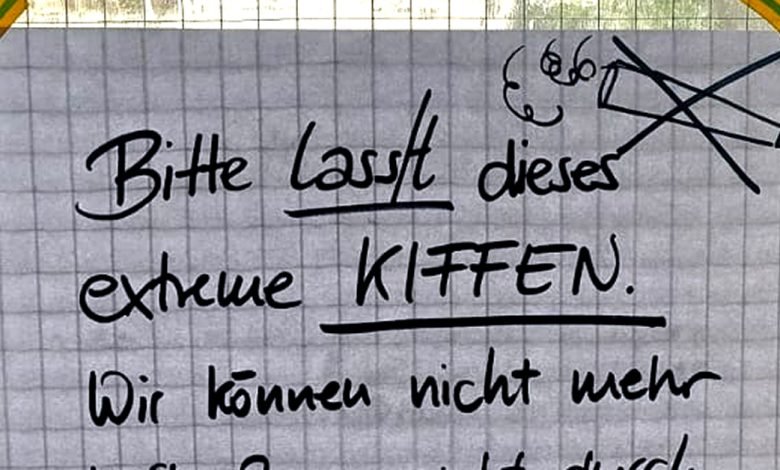 Bitte lasst dieses
extreme KIFFEN.
Wir können nicht mehr